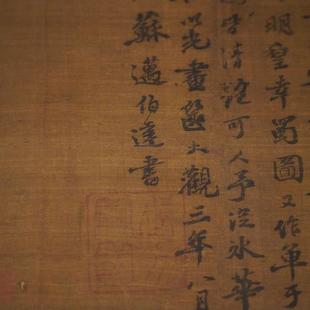 明皇幸蜀圖又作單于
皆清可人予從氷華
以光畫篋大觀三年八月
蘇邁伯達書